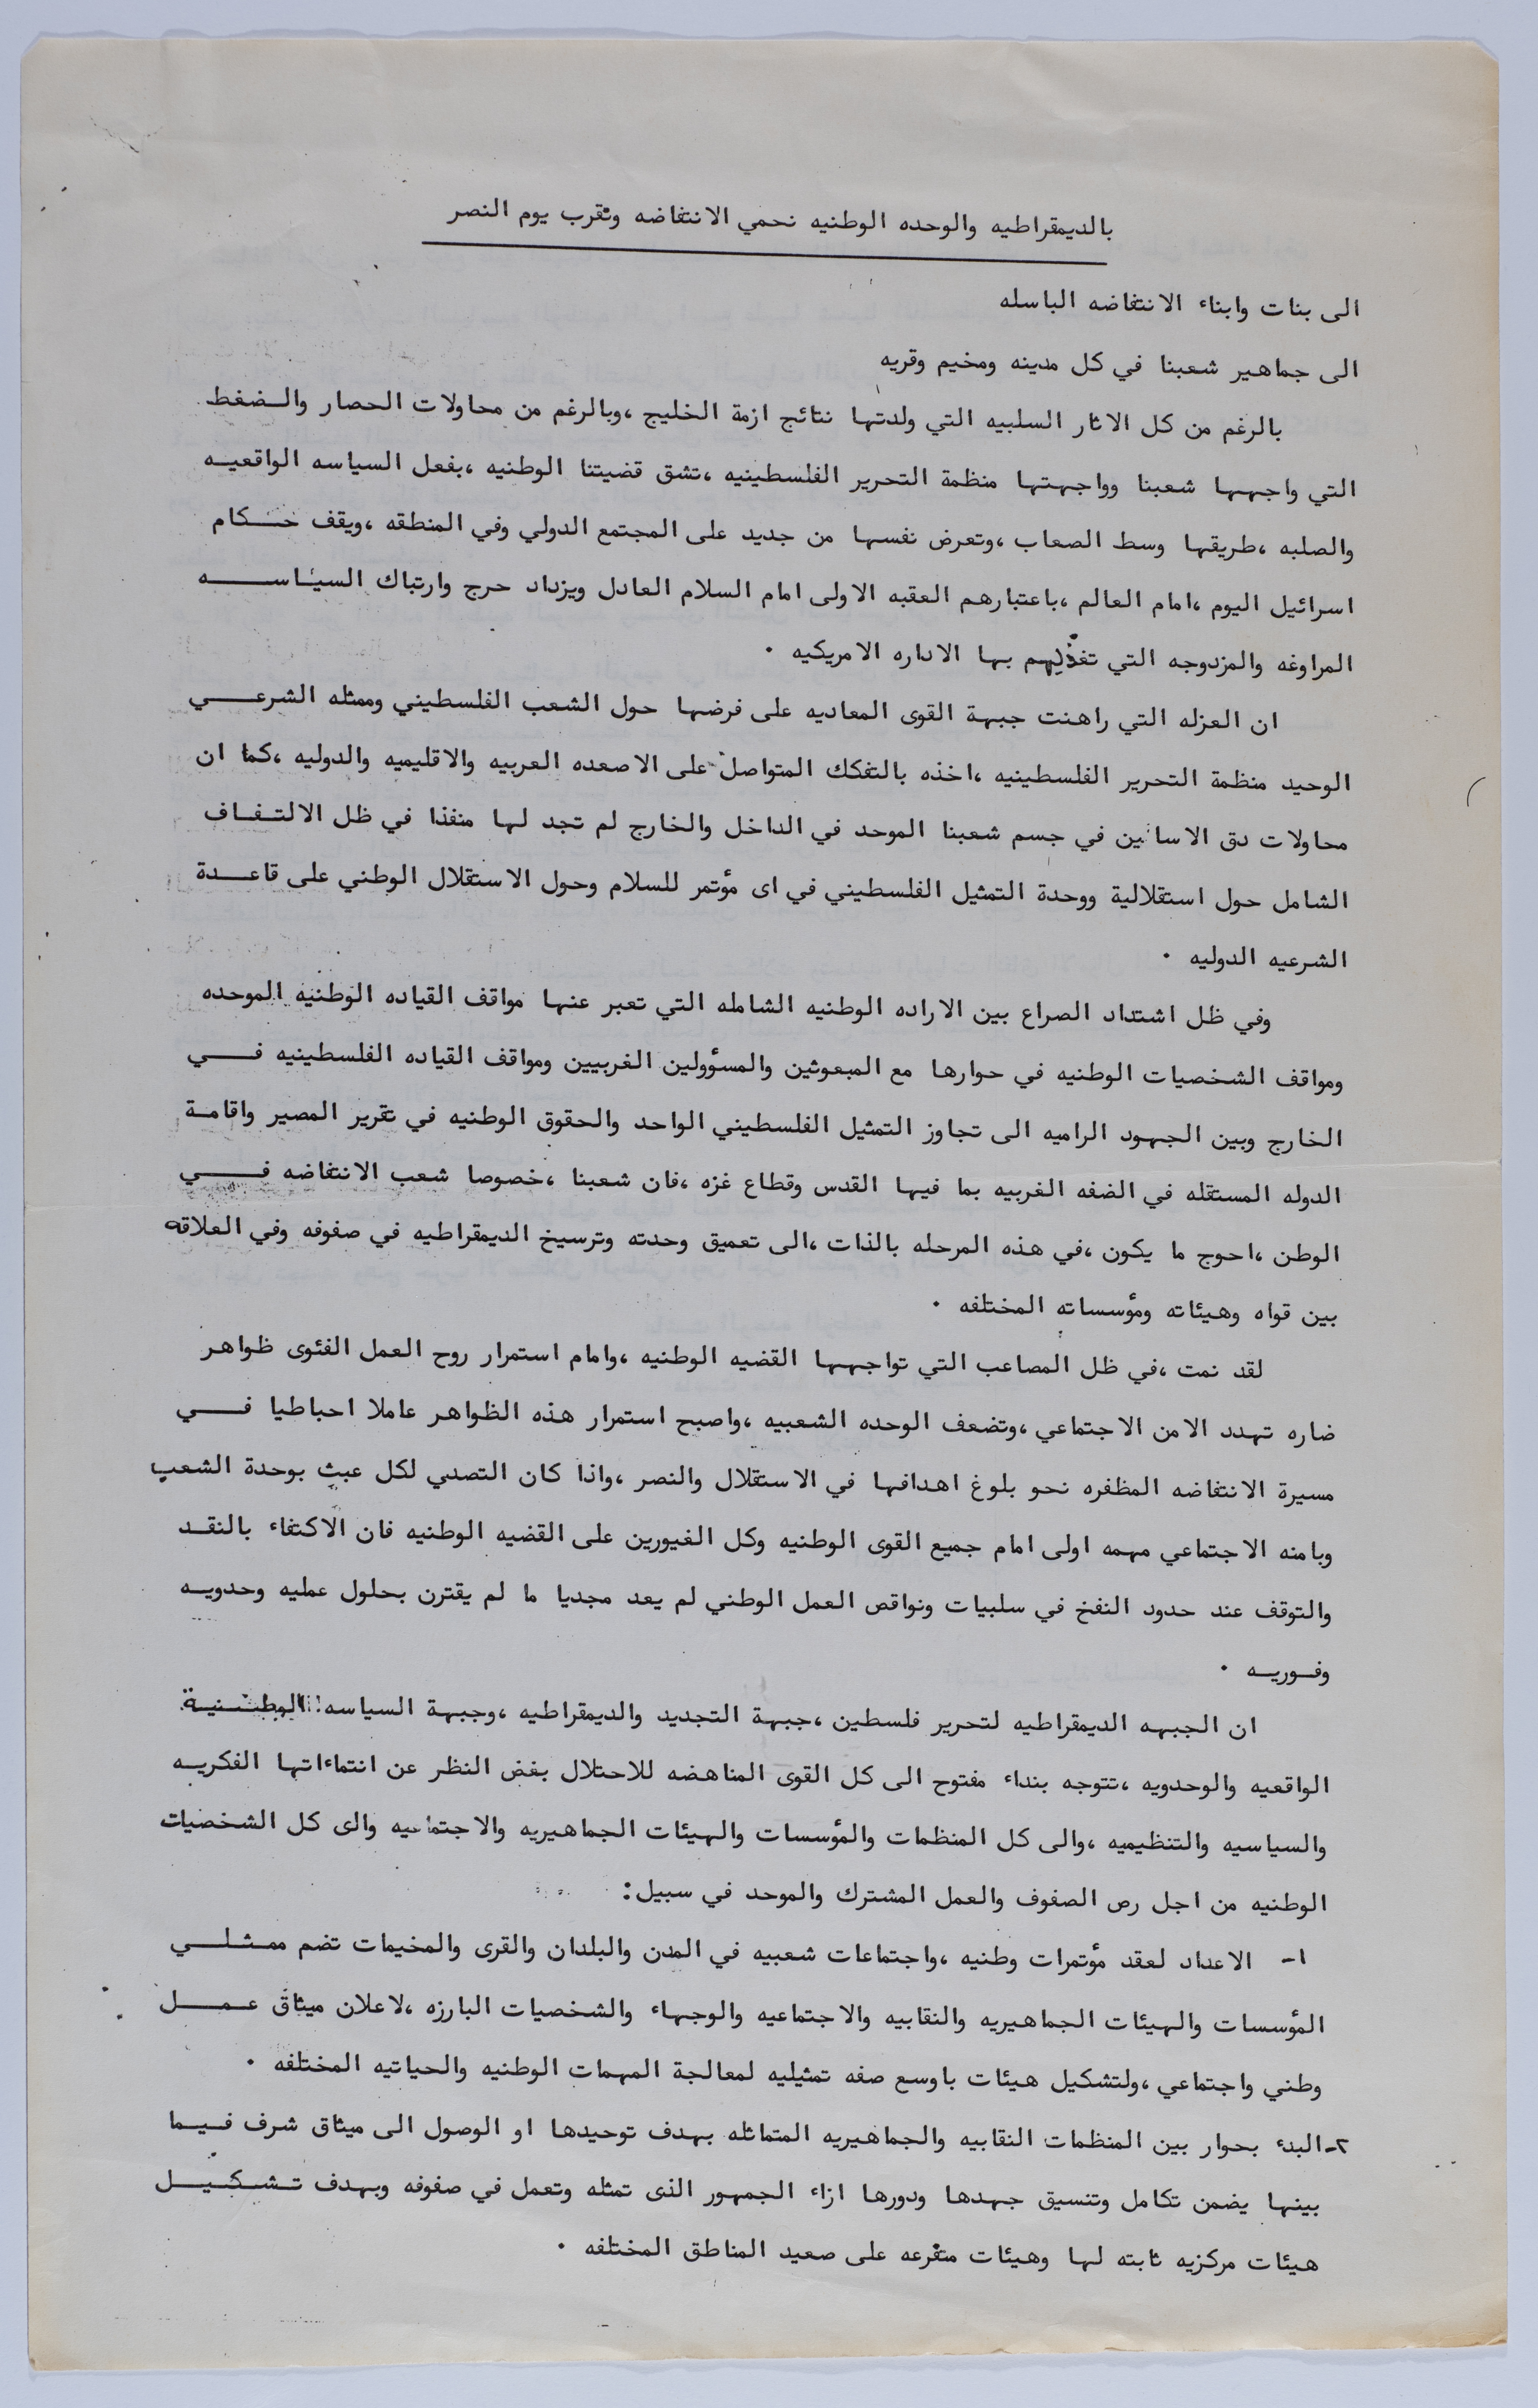 بالديمقراطيه والوحده الوطنيه نحمي الانتفاضه ونقرب يوم النصر
الى بنات وابناء الانتفاضه الباسله
الى جماهير شعبنا في كل مدينه ومخيم وقريه
بالرغم من كل الاثار السلبيه التي ولدتها نتائج ازمة الخليج ،وبالرغم من محاولات الحصار والـضغط
التي واجهها شعبنا وواجهتها منظمة التحرير الفلسطينيه ،تشق قضيتنا الوطنيه ،بفعل السياسه الواقعيـه
والصلبه ،طريقها وسط الصعاب ،وتعرض نفسها من جديد على المجتمع الدولي وفي المنطقه ،ويقف حـكام
اسرائيل اليوم ،امام العالم ،باعتبارهم العقبه الاولى امام السلام العادل ويزداد حرج وارتباك السياســـه
المراوغه والمزدوجه التي تغذيهم بها الاداره الامريكيه ٠
ان العزله التي راهنت جبهة القوى المعاديه على فرضها حول الشعب الفلسطيني وممثله الشرعــي
الوحيد منظمة التحرير الفلسطينيه ،اخذه بالتفكك المتواصل على الاصعده العربيه والاقليميه والدوليه ،كما ان
محاولات دق الاسافين في جسم شعبنا الموحد في الداخل والخارج لم تجد لها منفذا في ظل الالتـفـاف
الشامل حول استقلالية ووحدة التمثيل الفلسطيني في اى مؤتمر للسلام وحول الاستقلال الوطني على قاعــدة
الشرعيه الدوليه ٠
وفي ظل اشتداد الصراع بين الاراده الوطنيه الشامله التي تعبر عنها مواقف القياده الوطنيه الموحده
ومواقف الشخصيات الوطنيه في حوارها مع المبعوثين والمسؤولين الغربيين ومواقف القياده الفلسطينيه فــي
الخارج وبين الجهود الراميه الى تجاوز التمثيل الفلسطيني الواحد والحقوق الوطنيه في تقرير المصير واقامـة
الدوله المستقله في الضفه الغربيه بما فيها القدس وقطاع غزه ،فان شعبنا ،خصوصا شعب الانتفاضه فــي
الوطن ،احوج ما يكون ،في هذه المرحله بالذات ،الى تعميق وحدته وترسيخ الديمقراطيه في صفوفه وفي العلاقه
بين قواه وهيئاته ومؤسساته المختلفه ٠
لقد نمت ،في ظل المصاعب التي تواجهها القضيه الوطنيه ،وامام استمرار روح العمل الفئوى ظواهر
ضاره تهدد الامن الاجتماعي ،وتضعف الوحده الشعبيه ،واصبح استمرار هذه الظواهر عاملا احباطيا فــي
مسيرة الانتفاضه المظفره نحو بلوغ اهدافها في الاستقلال والنصر ،واذا كان التصدي لكل عبث بوحدة الشعب
وبامنه الاجتماعي مهمه اولى امام جميع القوى الوطنيه وكل الغيورين على القضيه الوطنيه فان الاكتفاء بالنقـد
والتوقف عند حدود النفخ في سلبيات ونواقص العمل الوطني لم يعد مجديا ما لم يقترن بحلول عمليه وحدويـه
وفـوريـه ٠
ان الجبهه الديمقراطيه لتحرير فلسطين ،جبهة التجديد والديمقراطيه ،وجبهة السياسه الوطـنية
الواقعيه والوحدويه ،تتوجه بنداء مفتوح الى كل القوى المناهضه للاحتلال بغض النظر عن انتماءاتها الفكريـه
والسياسيه والتنظيميه ،والى كل المنظمات والمؤسسات والهيئات الجماهيريه والاجتماعيه والى كل الشخصيات
الوطنيه من اجل رص الصفوف والعمل المشترك والموحد في سبيل:
١- الاعداد لعقد مؤتمرات وطنيه ،واجتماعات شعبيه في المدن والبلدان والقرى والمخيمات تضم ممـثـلـي
المؤسسات والهيئات الجماهيريه والنقابيه والاجتماعيه والوجهاء والشخصيات البارزه ،لاعلان ميثاق عـمــل
وطني واجتماعي ،ولتشكيل هيئات باوسع صفه تمثيليه لمعالجة المهمات الوطنيه والحياتيه المختلفه ٠
٢-البدء بحوار بين المنظمات النقابيه والجماهيريه المتماثله بهدف توحيدها او الوصول الى ميثاق شرف فـيـما
بينها يضمن تكامل وتنسيق جهدها ودورها ازاء الجمهور الذى تمثله وتعمل في صفوفه وبهدف تـشـكـيـل
هيئات مركزيه ثابته لها وهيئات متفرعه على صعيد المناطق المختلفه ٠